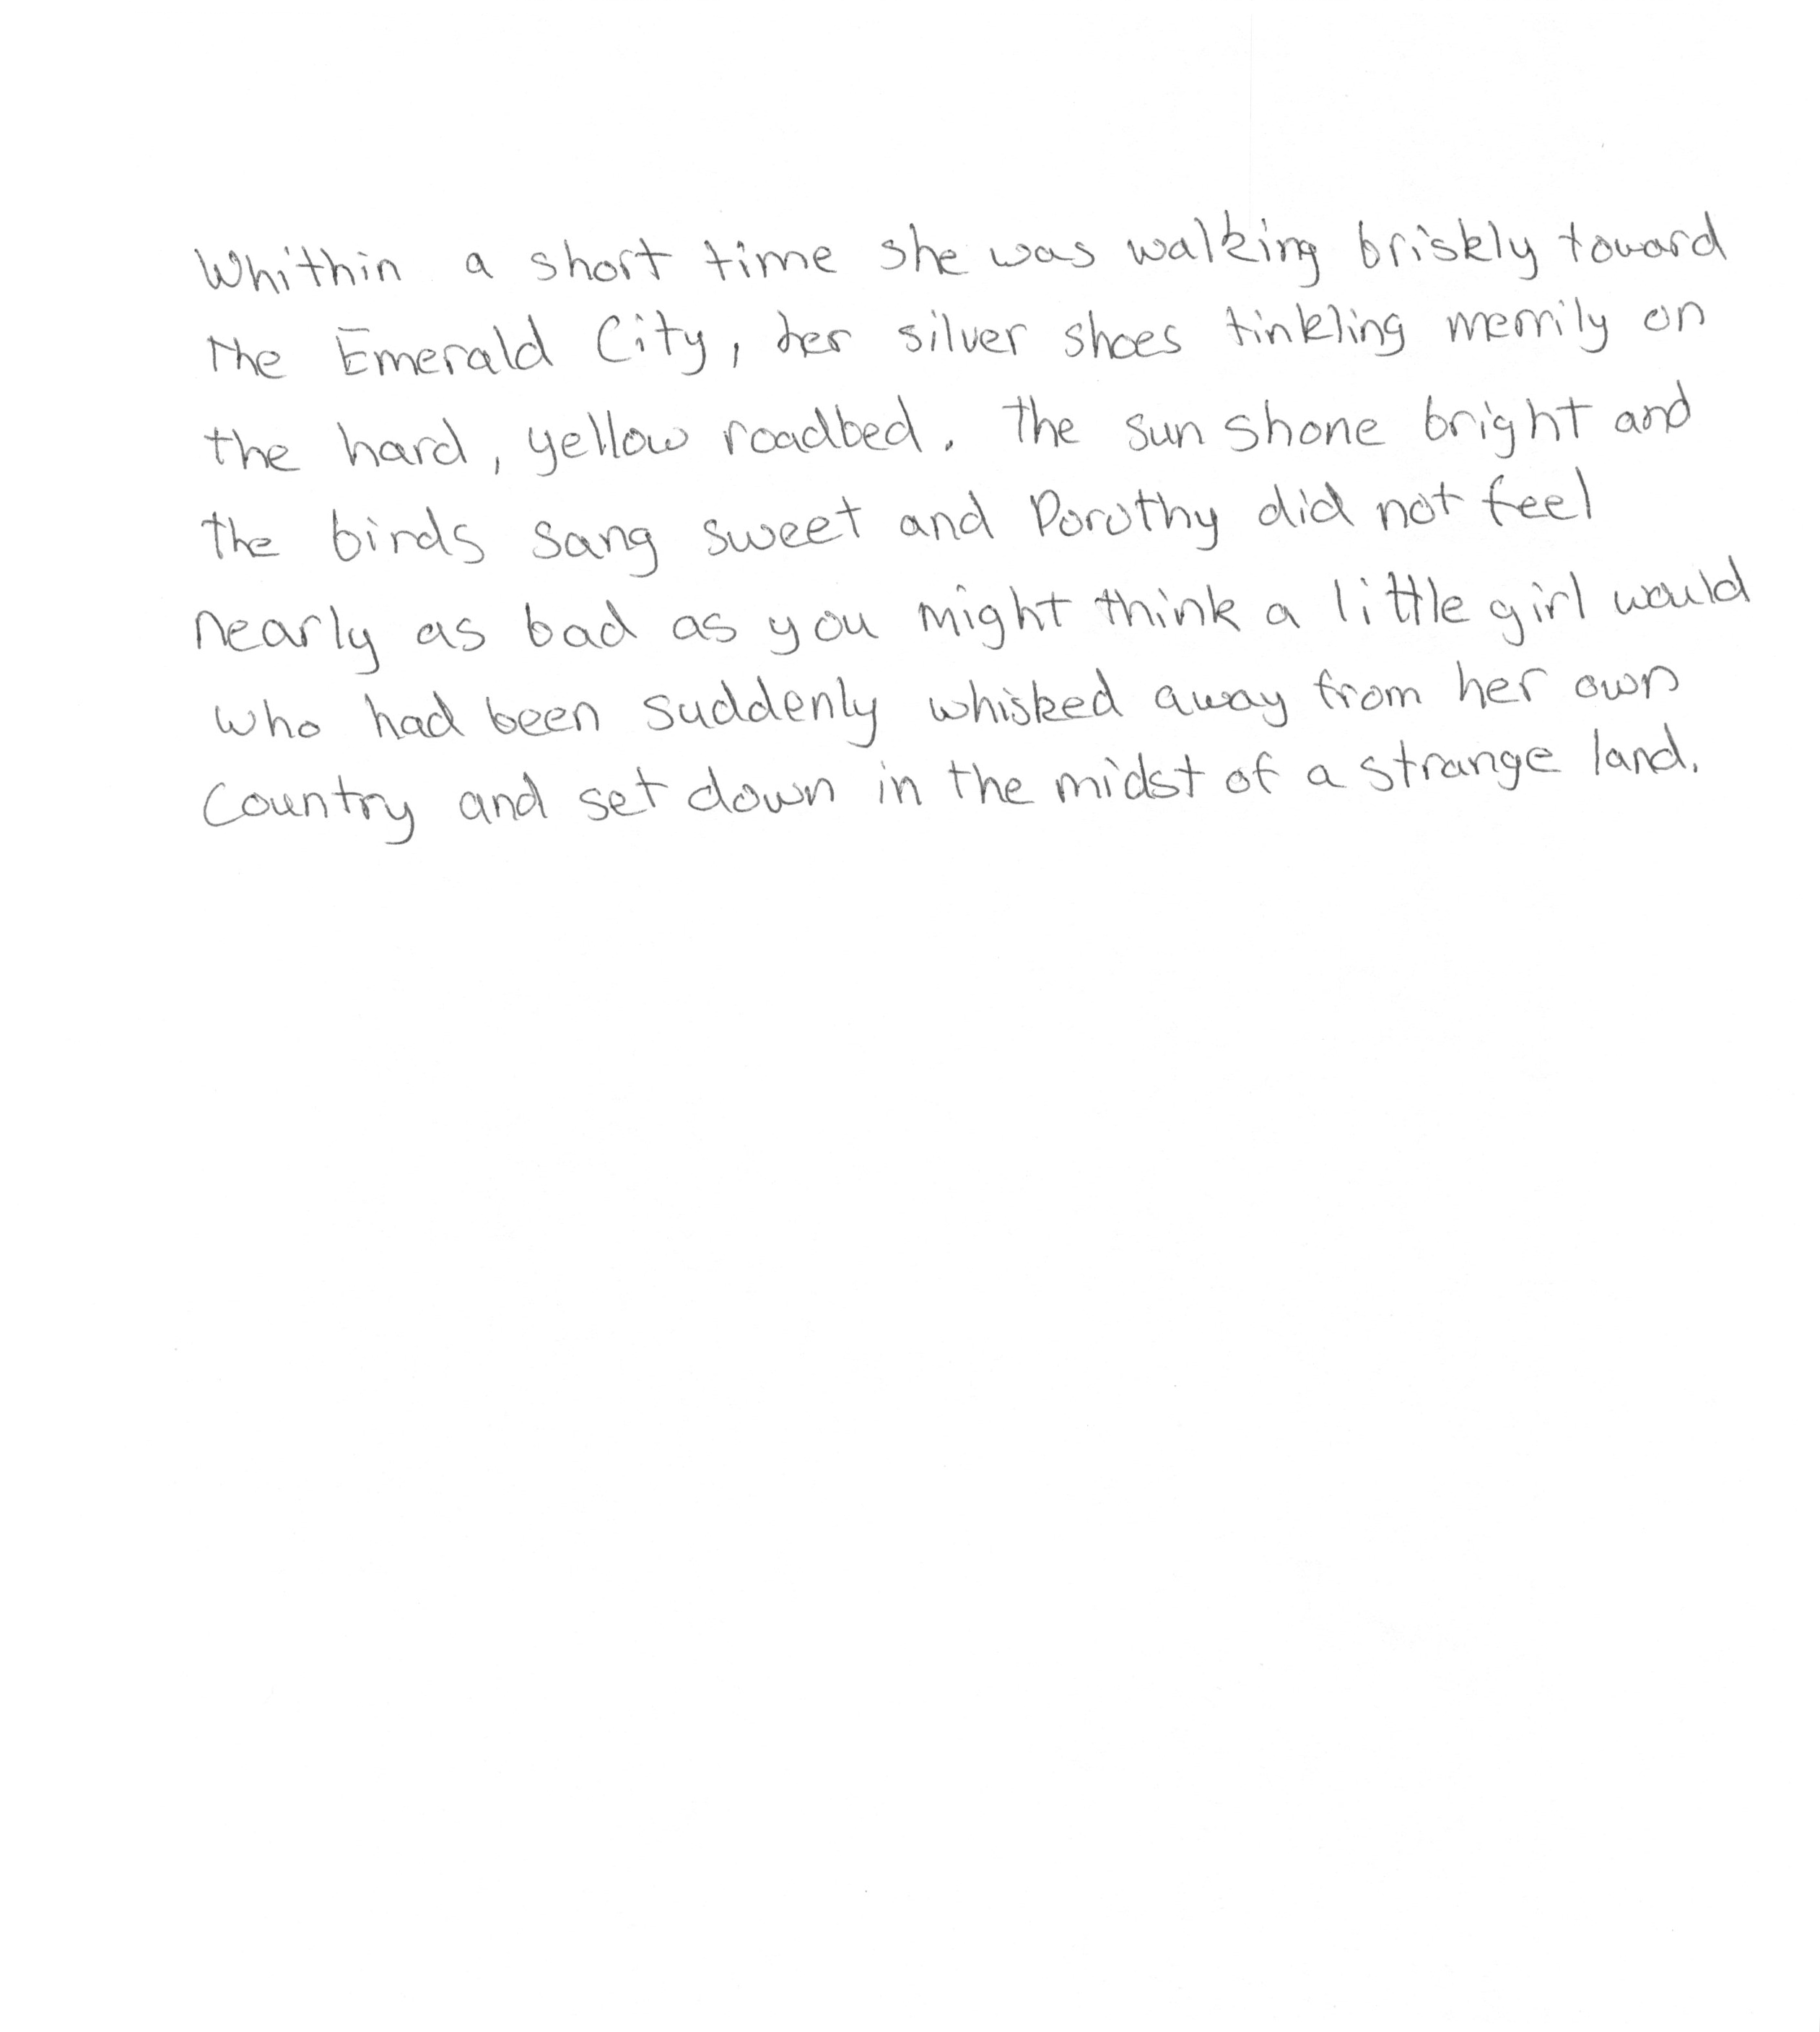 Whithin a short time she was walking briskly toward
the Emerald City, her silver shoes tinkling merrily on
the hard, yellow roadbed. The sun shone bright and
the birds sang sweet and Dorothy did not feel
nearly as bad as you might think a little girl would
who had been suddenly whisked away from her own
country and set down in the midst of a strange land.